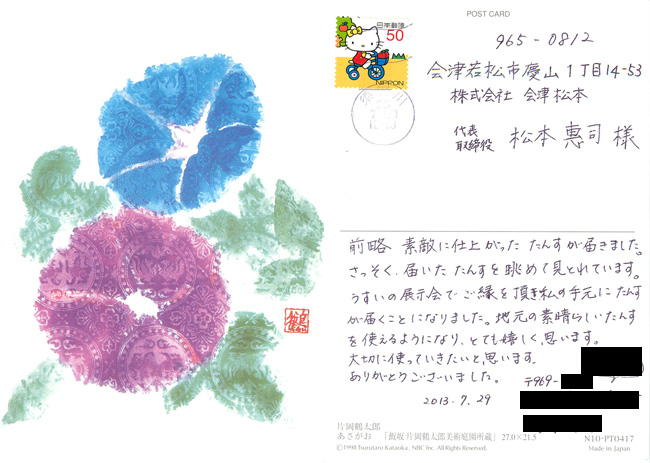 POST CARD
日本郵便
50
NIPPON
965-0812
会津若松市慶山1丁目14-53
株式会社 会津松本
代表
取締役 松本 惠司 様
前略 素敵に仕上がった たんすが届きました。
さっそく、届いた たんすを眺めて見とれています。
うすいの展示会でご縁を頂き私の手元にたんす
が届くことになりました。地元の素晴らしいたんす
を使えるようになり、とても嬉しく思います。
大切に使っていきたいと思います。
ありがとうございました。
〒969-
2013.7.29
片岡鶴太郎
あさがお 「飯坂 片岡鶴太郎美術庭園所蔵」 27.0×21.5
©1998 Tsurutaro Kataoka, NBC Inc. All Rights Reserved.
N10-PT0417
Made in Japan